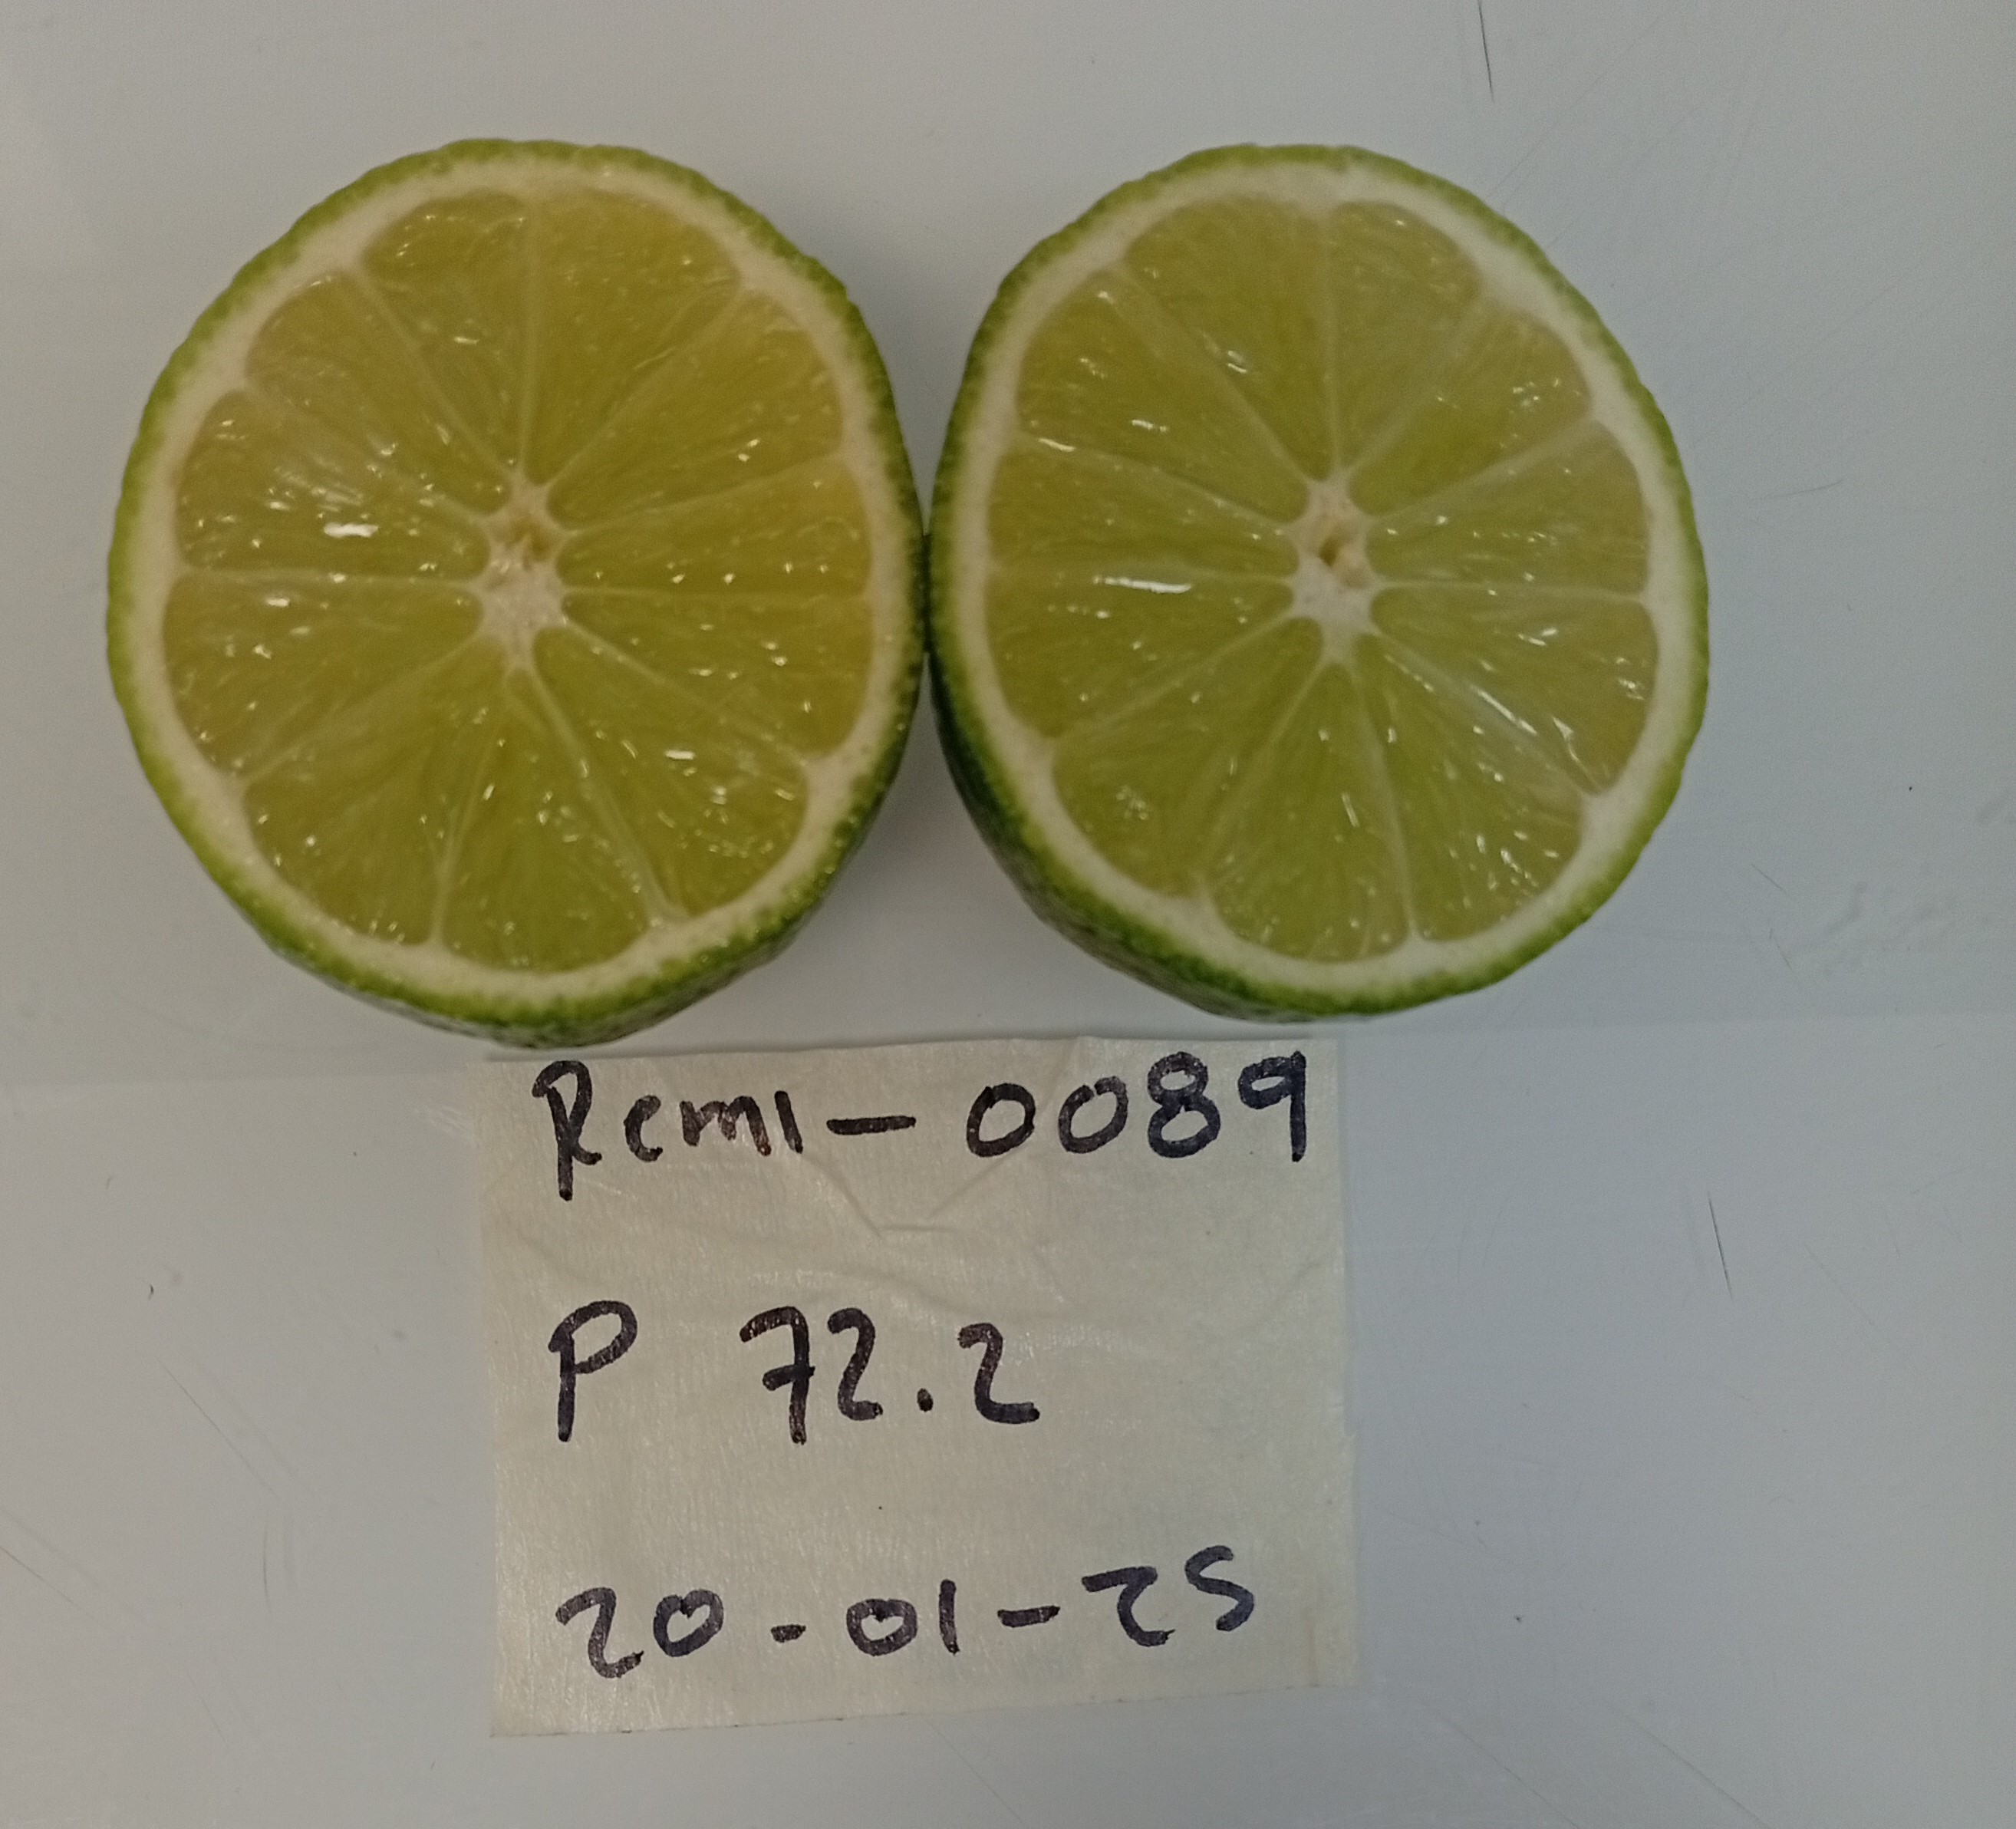 Remi-0089
P 72.2
20-01-25